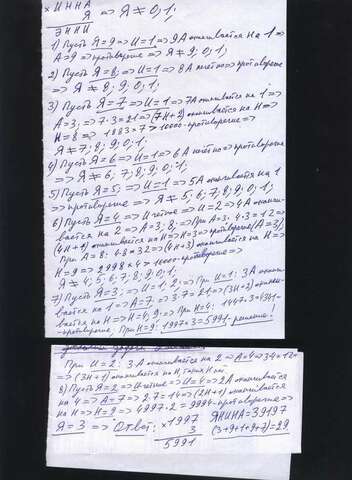 × ИННА
Я => Я ≠ 0; 1;
ЭННИ
1) Пусть Я = 9 => И = 1 => 9А оканчивается на 1 =>
А = 9 => противоречие => Я ≠ 9; 0; 1;
2) Пусть Я = 8; => И = 1 => 8А чётно => противоречие
=> Я ≠ 8; 9; 0; 1;
3) Пусть Я = 7 => И = 1 => 7А оканчивается на 1 =>
А = 3; => 7·3 = 21 => (7Н+2) оканчивается на Н =>
Н = 8 => 1883×7 > 10000 - противоречие =>
Я ≠ 7; 8; 9; 0; 1;
4) Пусть Я = 6 => И = 1 => 6А чётно => противоречие
=> Я ≠ 6; 7; 8; 9; 0; 1;
5) Пусть Я = 5; => И = 1 => 5А оканчивается на 1
=> противоречие => Я ≠ 5; 6; 7; 8; 9; 0; 1;
6) Пусть Я = 4 => И чётное => И = 2 => 4А оканчи-
вается на 2 => А = 3; 8; => При А = 3: 4·3 = 12 =>
(4Н+1) оканчивается на Н => Н = 3 => противоречие (А = 3);
При А = 8: 4·8 = 32 => (4Н+3) оканчивается на Н =>
Н = 9 => 2998×4 > 10000 - противоречие =>
Я ≠ 4; 5; 6; 7; 8; 9; 0; 1;
7) Пусть Я = 3; => И = 1; 2; => При И = 1: 3А оканчи-
вается на 1 => А = 7 => 3·7 = 21 => (3Н+2) оканчи-
вается на Н => Н = 4; 9 => При Н = 4: 1447×3 = 4341 -
- противоречие; При Н = 9: 1997×3 = 5991 - решение!
При И = 2: 3А оканчивается на 2 => А = 4 => 3·4 = 12 =>
=> (3Н+1) оканчивается на Н,
8) Пусть Я = 2 => И чётное => И = 4 => 2А оканчивается
на 4 => А = 7 => 2·7 = 14 => (2Н+1) оканчивается
на Н => Н = 9 => 4997·2 = 9994 - противоречие =>
Я = 3 => Ответ: × 1997 ЯНИНА = 39197
3 (3+9+1+9+7) = 29
5991